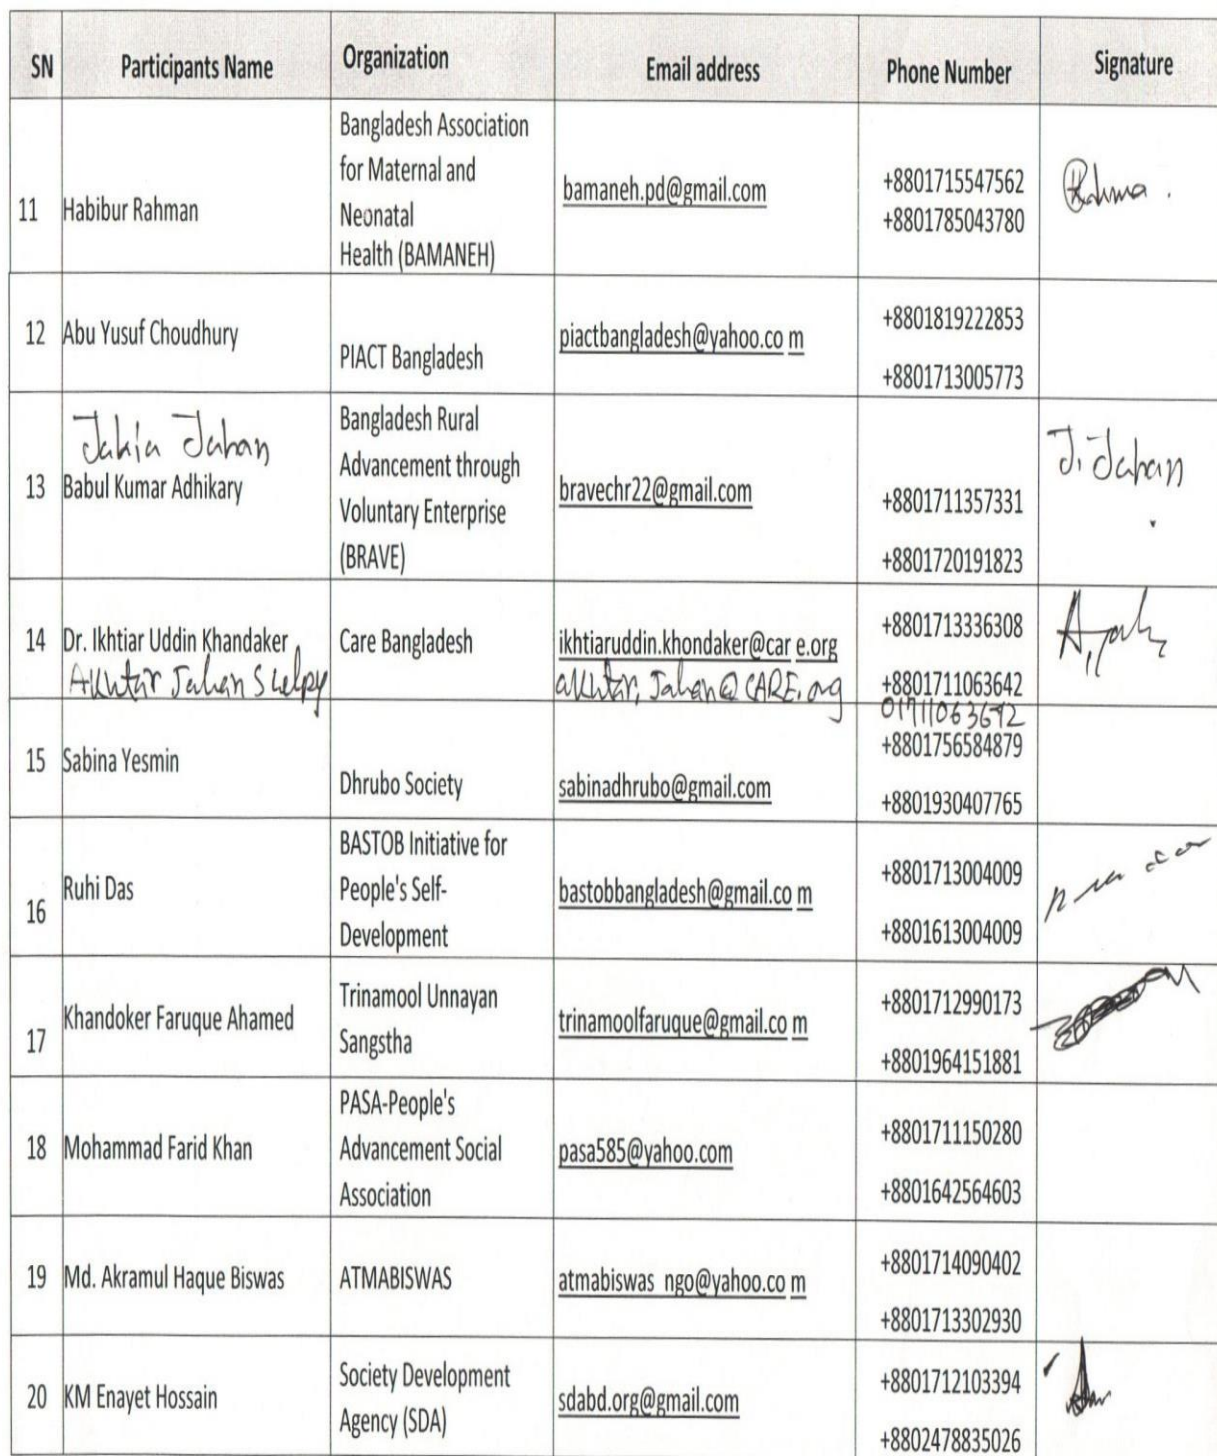 SN Participants Name Organization Email address Phone Number Signature
11 Habibur Rahman
Bangladesh Association
for Maternal and
Neonatal
Health (BAMANEH)
bamaneh.pd@gmail.com
+8801715547562
+8801785043780
12 Abu Yusuf Choudhury
PIACT Bangladesh
piactbangladesh@yahoo.co m
+8801819222853
+8801713005773
13
Jakia Jahan
Babul Kumar Adhikary
Bangladesh Rural
Advancement through
Voluntary Enterprise
(BRAVE)
bravechr22@gmail.com
+8801711357331
+8801720191823
J. Jahan
14 Dr. Ikhtiar Uddin Khandaker
Akhtar Jahan Shelpy
Care Bangladesh
ikhtiaruddin.khondaker@car e.org
akhtar.Jahan@CARE.org
+8801713336308
+8801711063642
01711063642
15 Sabina Yesmin
Dhrubo Society
sabinadhrubo@gmail.com
+8801756584879
+8801930407765
16 Ruhi Das
BASTOB Initiative for
People's Self-
Development
bastobbangladesh@gmail.co m
+8801713004009
+8801613004009
17 Khandoker Faruque Ahamed
Trinamool Unnayan
Sangstha
trinamoolfaruque@gmail.co m
+8801712990173
+8801964151881
18 Mohammad Farid Khan
PASA-People's
Advancement Social
Association
pasa585@yahoo.com
+8801711150280
+8801642564603
19 Md. Akramul Haque Biswas
ATMABISWAS
atmabiswas ngo@yahoo.co m
+8801714090402
+8801713302930
20 KM Enayet Hossain
Society Development
Agency (SDA)
sdabd.org@gmail.com
+8801712103394
+8802478835026